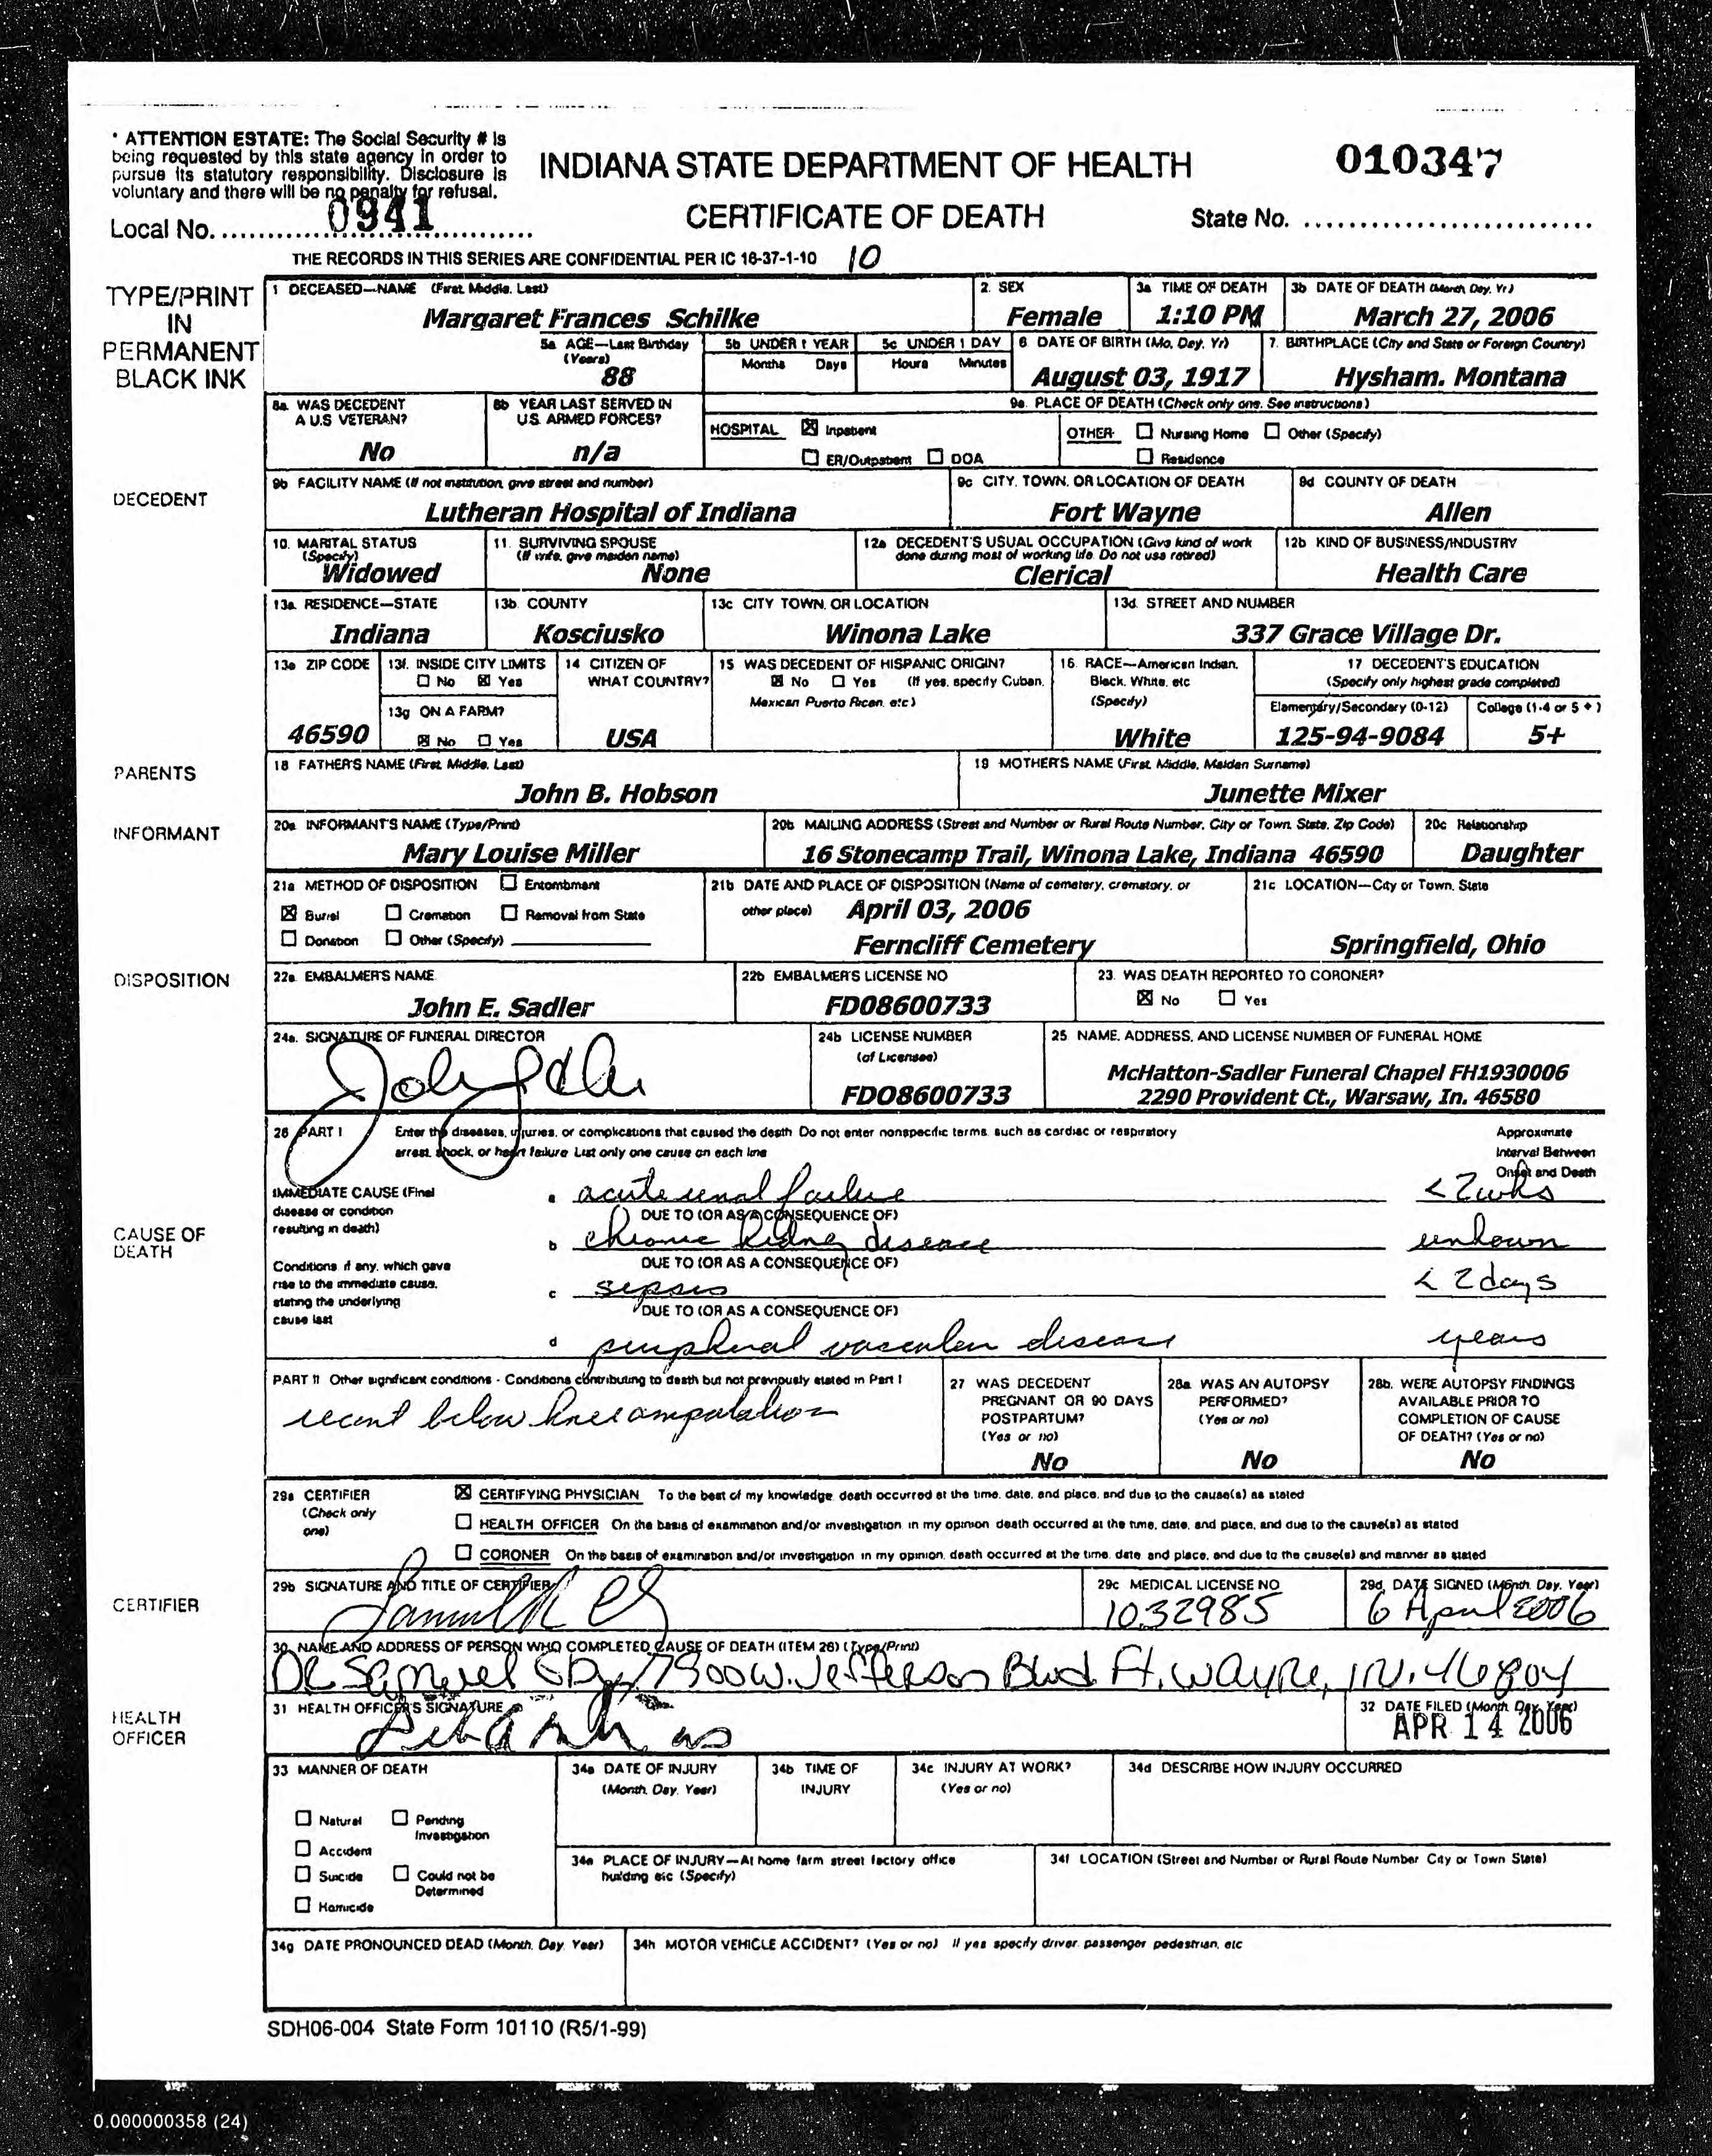 * ATTENTION ESTATE: The Social Security # is
being requested by this state agency in order to
pursue its statutory responsibility. Disclosure is
voluntary and there will be no penalty for refusal.
INDIANA STATE DEPARTMENT OF HEALTH
010347
Local No. 0941
CERTIFICATE OF DEATH
State No.
THE RECORDS IN THIS SERIES ARE CONFIDENTIAL PER IC 16-37-1-10 10
TYPE/PRINT
IN
PERMANENT
BLACK INK
1 DECEASED—NAME (First, Middle, Last)
Margaret Frances Schilke
2. SEX
Female
3a TIME OF DEATH
1:10 PM
3b DATE OF DEATH (Month, Day, Yr.)
March 27, 2006
5a AGE—Last Birthday
(Years)
88
5b UNDER 1 YEAR
Months Days
5c UNDER 1 DAY
Hours Minutes
6 DATE OF BIRTH (Mo, Day, Yr)
August 03, 1917
7. BIRTHPLACE (City and State or Foreign Country)
Hysham. Montana
8a. WAS DECEDENT
A U.S VETERAN?
No
8b YEAR LAST SERVED IN
U.S. ARMED FORCES?
n/a
9a. PLACE OF DEATH (Check only one. See instructions)
HOSPITAL ☒ Inpatient
☐ ER/Outpatient ☐ DOA
OTHER ☐ Nursing Home ☐ Other (Specify)
☐ Residence
DECEDENT
9b FACILITY NAME (If not institution, give street and number)
Lutheran Hospital of Indiana
9c CITY, TOWN, OR LOCATION OF DEATH
Fort Wayne
9d COUNTY OF DEATH
Allen
10. MARITAL STATUS
(Specify)
Widowed
11. SURVIVING SPOUSE
(If wife, give maiden name)
None
12a DECEDENT'S USUAL OCCUPATION (Give kind of work
done during most of working life. Do not use retired)
Clerical
12b KIND OF BUSINESS/INDUSTRY
Health Care
13a. RESIDENCE—STATE
Indiana
13b. COUNTY
Kosciusko
13c CITY TOWN, OR LOCATION
Winona Lake
13d. STREET AND NUMBER
337 Grace Village Dr.
13e ZIP CODE
46590
13f. INSIDE CITY LIMITS
☐ No ☒ Yes
13g ON A FARM?
☒ No ☐ Yes
14 CITIZEN OF
WHAT COUNTRY?
USA
15 WAS DECEDENT OF HISPANIC ORIGIN?
☒ No ☐ Yes (If yes, specify Cuban,
Mexican Puerto Rican, etc)
16. RACE—American Indian,
Black, White, etc
(Specify)
White
17 DECEDENT'S EDUCATION
(Specify only highest grade completed)
Elementary/Secondary (0-12)
125-94-9084
College (1-4 or 5 +)
5+
PARENTS
18 FATHER'S NAME (First, Middle, Last)
John B. Hobson
19 MOTHER'S NAME (First, Middle, Maiden Surname)
Junette Mixer
INFORMANT
20a INFORMANT'S NAME (Type/Print)
Mary Louise Miller
20b MAILING ADDRESS (Street and Number or Rural Route Number, City or Town, State, Zip Code)
16 Stonecamp Trail, Winona Lake, Indiana 46590
20c Relationship
Daughter
21a METHOD OF DISPOSITION ☐ Entombment
☒ Burial ☐ Cremation ☐ Removal from State
☐ Donation ☐ Other (Specify)
21b DATE AND PLACE OF DISPOSITION (Name of cemetery, crematory, or
other place) April 03, 2006
Ferncliff Cemetery
21c LOCATION—City or Town, State
Springfield, Ohio
DISPOSITION
22a. EMBALMER'S NAME
John E. Sadler
22b EMBALMER'S LICENSE NO
FD08600733
23. WAS DEATH REPORTED TO CORONER?
☒ No ☐ Yes
24a. SIGNATURE OF FUNERAL DIRECTOR
24b LICENSE NUMBER
(of Licensee)
FDO8600733
25 NAME, ADDRESS, AND LICENSE NUMBER OF FUNERAL HOME
McHatton-Sadler Funeral Chapel FH1930006
2290 Provident Ct., Warsaw, In. 46580
26 PART I Enter the diseases, injuries, or complications that caused the death Do not enter nonspecific terms, such as cardiac or respiratory
arrest, shock, or heart failure List only one cause on each line
Approximate
Interval Between
Onset and Death
CAUSE OF
DEATH
IMMEDIATE CAUSE (Final
disease or condition
resulting in death)
a acute renal failure < 2 wks
DUE TO (OR AS A CONSEQUENCE OF)
b chronic kidney disease unkown
DUE TO (OR AS A CONSEQUENCE OF)
Conditions if any, which gave
rise to the immediate cause,
stating the underlying
cause last
c sepsis < 2 days
DUE TO (OR AS A CONSEQUENCE OF)
d peripheral vascular disease years
PART II Other significant conditions - Conditions contributing to death but not previously stated in Part I
recent below knee amputation
27 WAS DECEDENT
PREGNANT OR 90 DAYS
POSTPARTUM?
(Yes or no)
No
28a WAS AN AUTOPSY
PERFORMED?
(Yes or no)
No
28b. WERE AUTOPSY FINDINGS
AVAILABLE PRIOR TO
COMPLETION OF CAUSE
OF DEATH? (Yes or no)
No
CERTIFIER
29a CERTIFIER
(Check only
one)
☒ CERTIFYING PHYSICIAN To the best of my knowledge, death occurred at the time, date, and place, and due to the cause(s) as stated
☐ HEALTH OFFICER On the basis of examination and/or investigation in my opinion death occurred at the time, date, and place, and due to the cause(s) as stated
☐ CORONER On the basis of examination and/or investigation in my opinion, death occurred at the time, date, and place, and due to the cause(s) and manner as stated
29b SIGNATURE AND TITLE OF CERTIFIER
29c MEDICAL LICENSE NO
1032985
29d. DATE SIGNED (Month, Day, Year)
6 April 2006
30. NAME AND ADDRESS OF PERSON WHO COMPLETED CAUSE OF DEATH (ITEM 26) (Type/Print)
DR Samuel 7900 W. Jefferson Blvd Ft. Wayne, IN. 46804
HEALTH
OFFICER
31 HEALTH OFFICER'S SIGNATURE
32 DATE FILED (Month, Day, Year)
APR 14 2006
33 MANNER OF DEATH
☐ Natural ☐ Pending
Investigation
☐ Accident
☐ Suicide ☐ Could not be
Determined
☐ Homicide
34a DATE OF INJURY
(Month, Day, Year)
34b TIME OF
INJURY
34c INJURY AT WORK?
(Yes or no)
34d DESCRIBE HOW INJURY OCCURRED
34e PLACE OF INJURY—At home farm street factory office
building etc (Specify)
34f LOCATION (Street and Number or Rural Route Number City or Town State)
34g DATE PRONOUNCED DEAD (Month, Day, Year)
34h MOTOR VEHICLE ACCIDENT? (Yes or no) If yes specify driver, passenger pedestrian, etc
SDH06-004 State Form 10110 (R5/1-99)
0.000000358 (24)